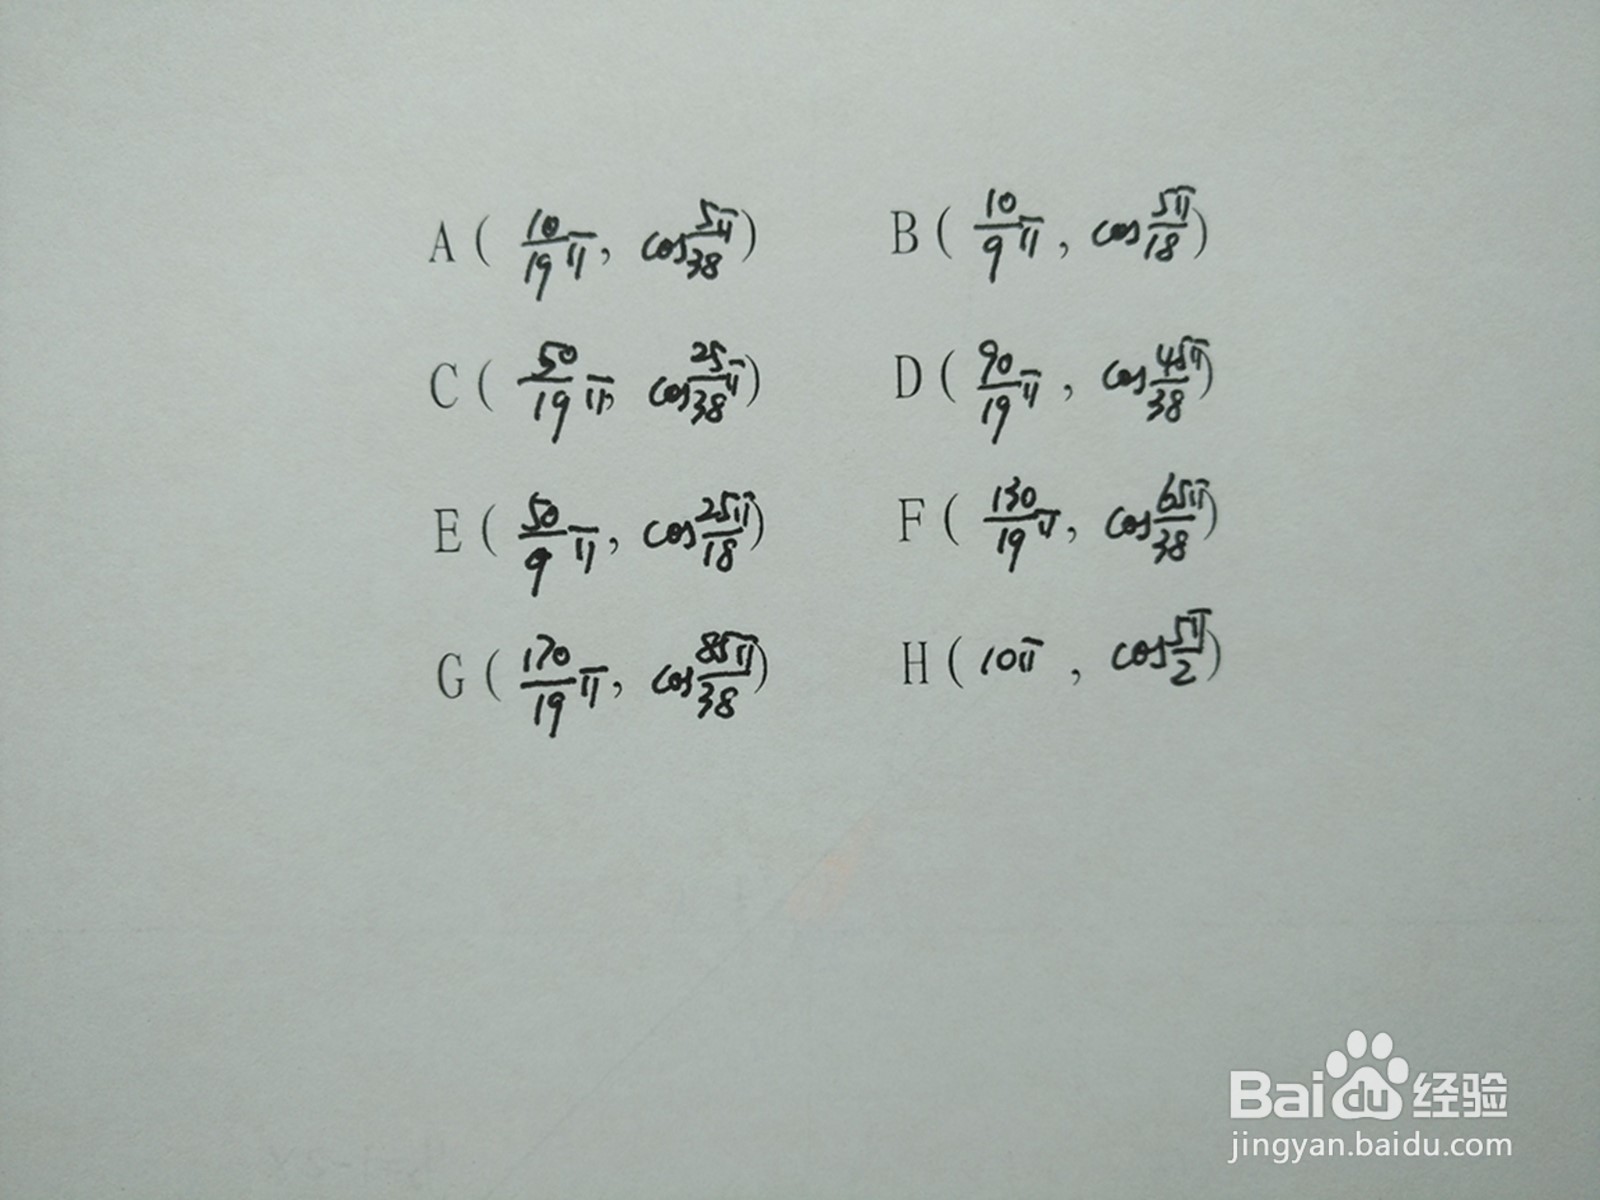 A ( 10/19 π, cos 5π/38 ) B ( 10/9 π, cos 5π/18 )
C ( 50/19 π, cos 25/38 π ) D ( 90/19 π, cos 45π/38 )
E ( 50/9 π, cos 25π/18 ) F ( 130/19 π, cos 65π/38 )
G ( 170/19 π, cos 85π/38 ) H ( 10π, cos 5π/2 )
Bai du 经验
jingyan.baidu.com